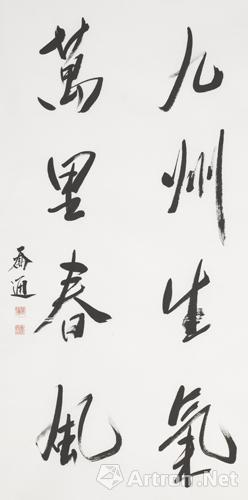 九州生氣
萬里春風
Artron.Net